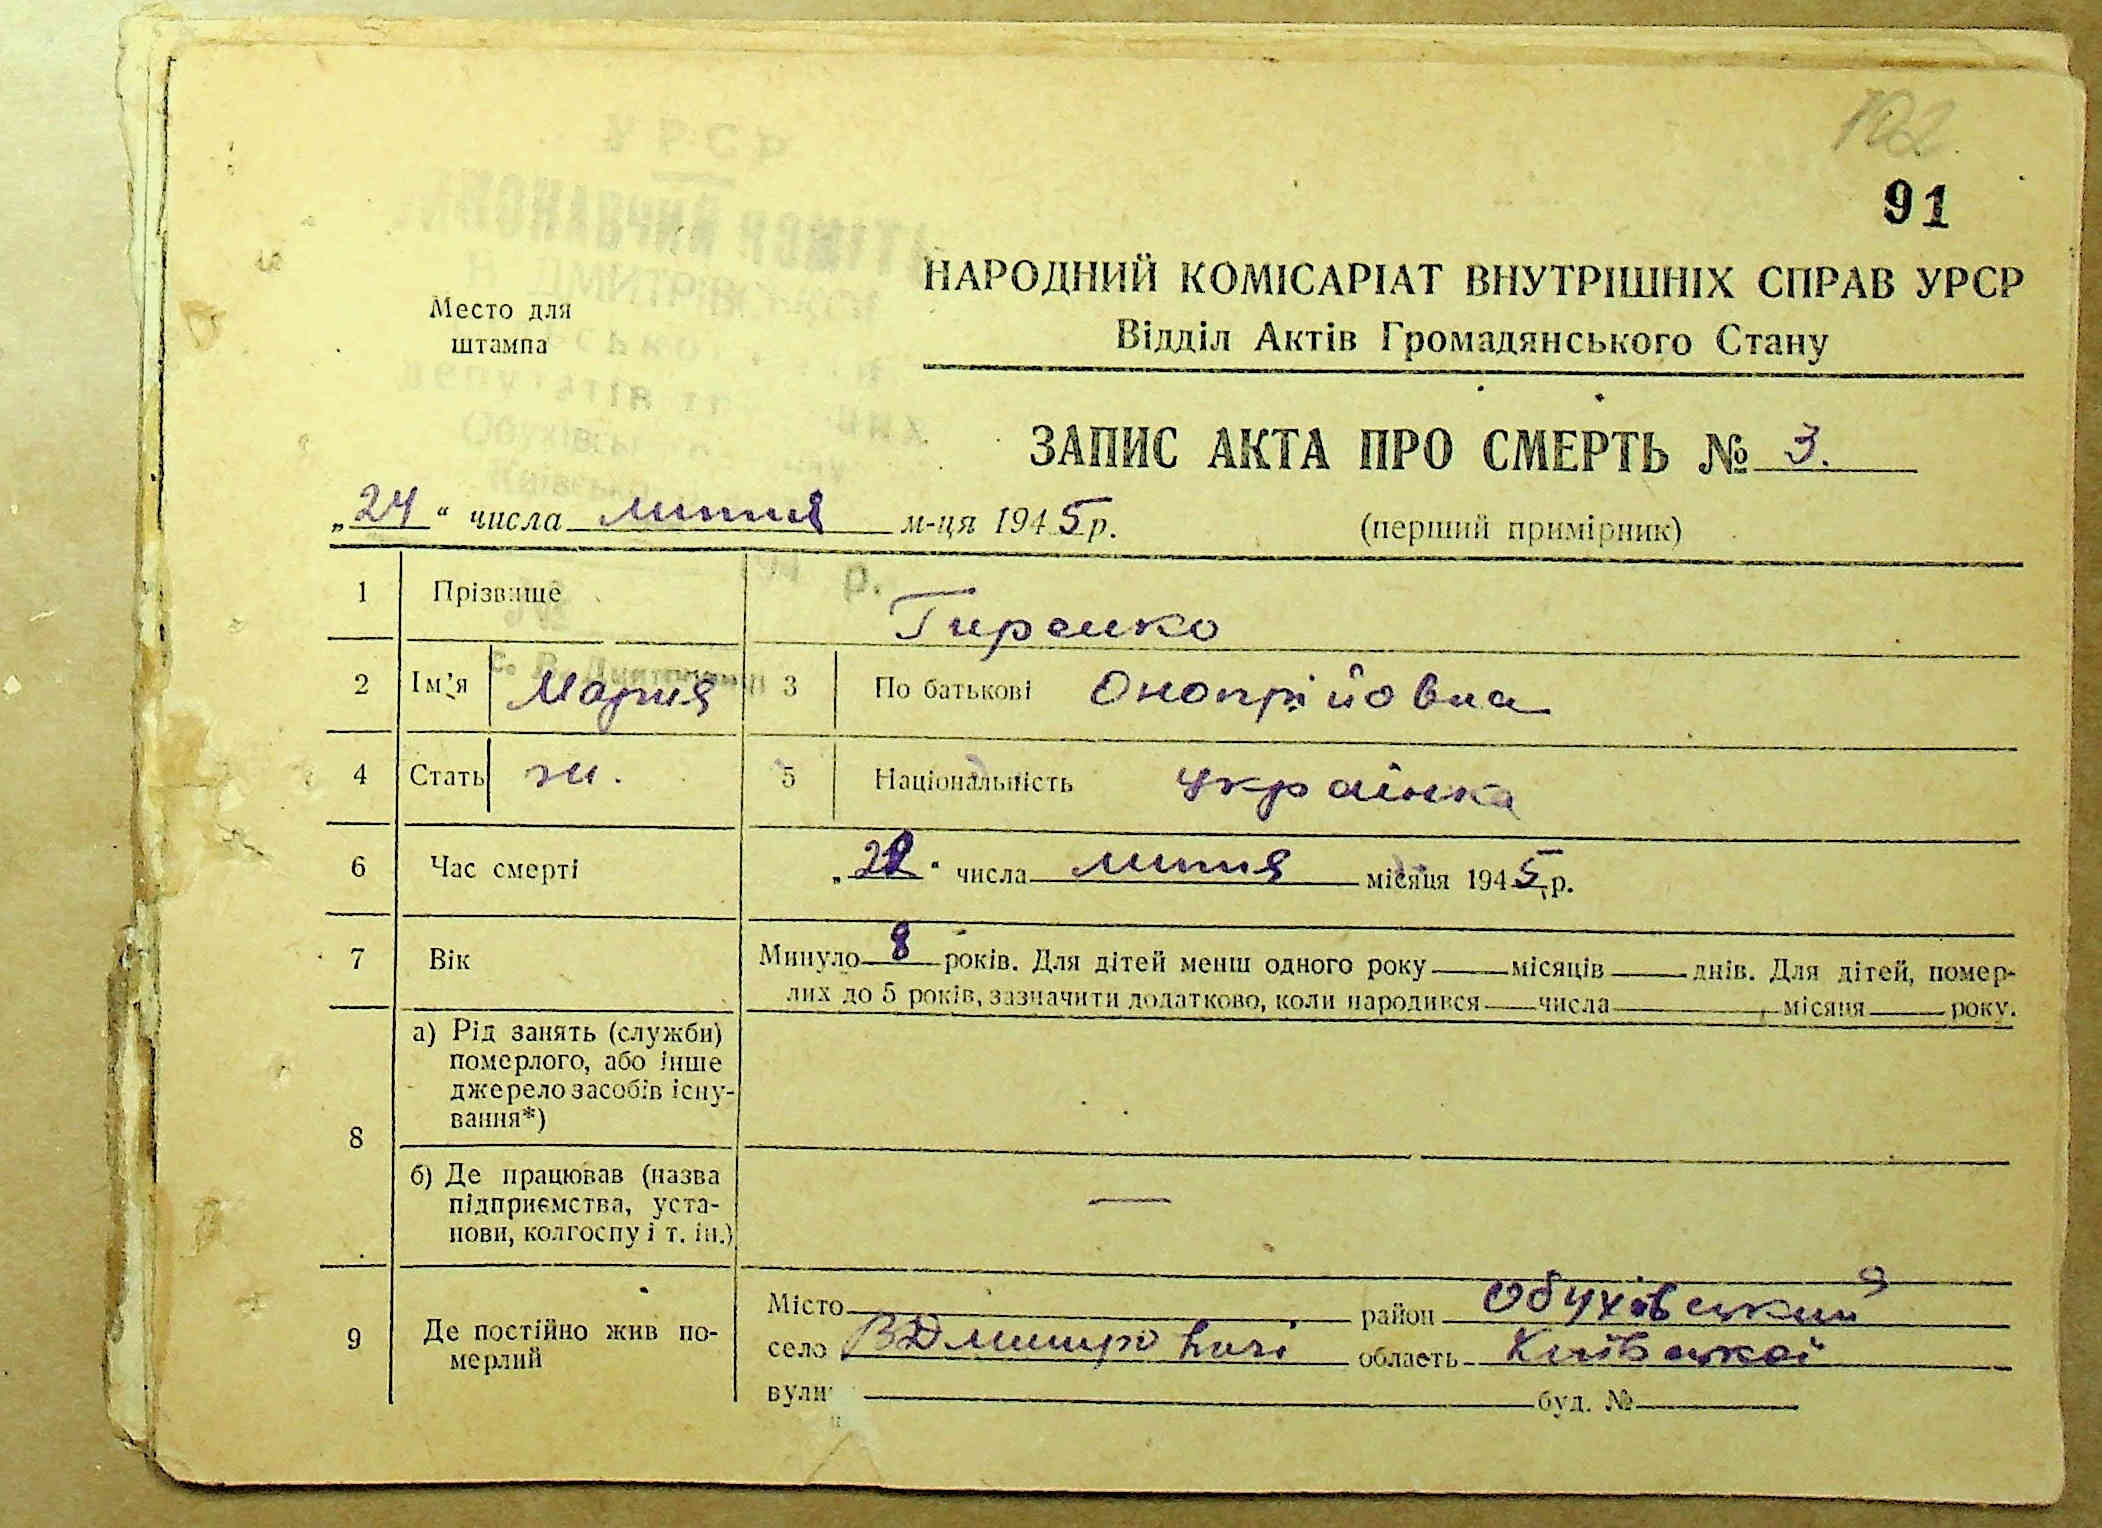 102
91
НАРОДНИЙ КОМІСАРІАТ ВНУТРІШНІХ СПРАВ УРСР
Место для штампа
Відділ Актів Громадянського Стану
ЗАПИС АКТА ПРО СМЕРТЬ № 3.
„24“ числа липня м-ця 1945 р.
(перший примірник)
1 Прізвище Гиренко
2 Ім'я Мария 3 По батькові Онопрійовна
4 Стать ж. 5 Національність українка
6 Час смерті „22“ числа липня місяця 1945 р.
7 Вік Минуло 8 років. Для дітей менш одного року місяців днів. Для дітей, помер-
лих до 5 років, зазначити додатково, коли народився числа місяця року.
8 а) Рід занять (служби)
померлого, або інше
джерело засобів існу-
вання*)
б) Де працював (назва
підприємства, уста-
нови, колгоспу і т. ін.) —
9 Де постійно жив по-
мерлий
Місто район Обухівський
село ВДмитровичі область Київської
вули буд. №